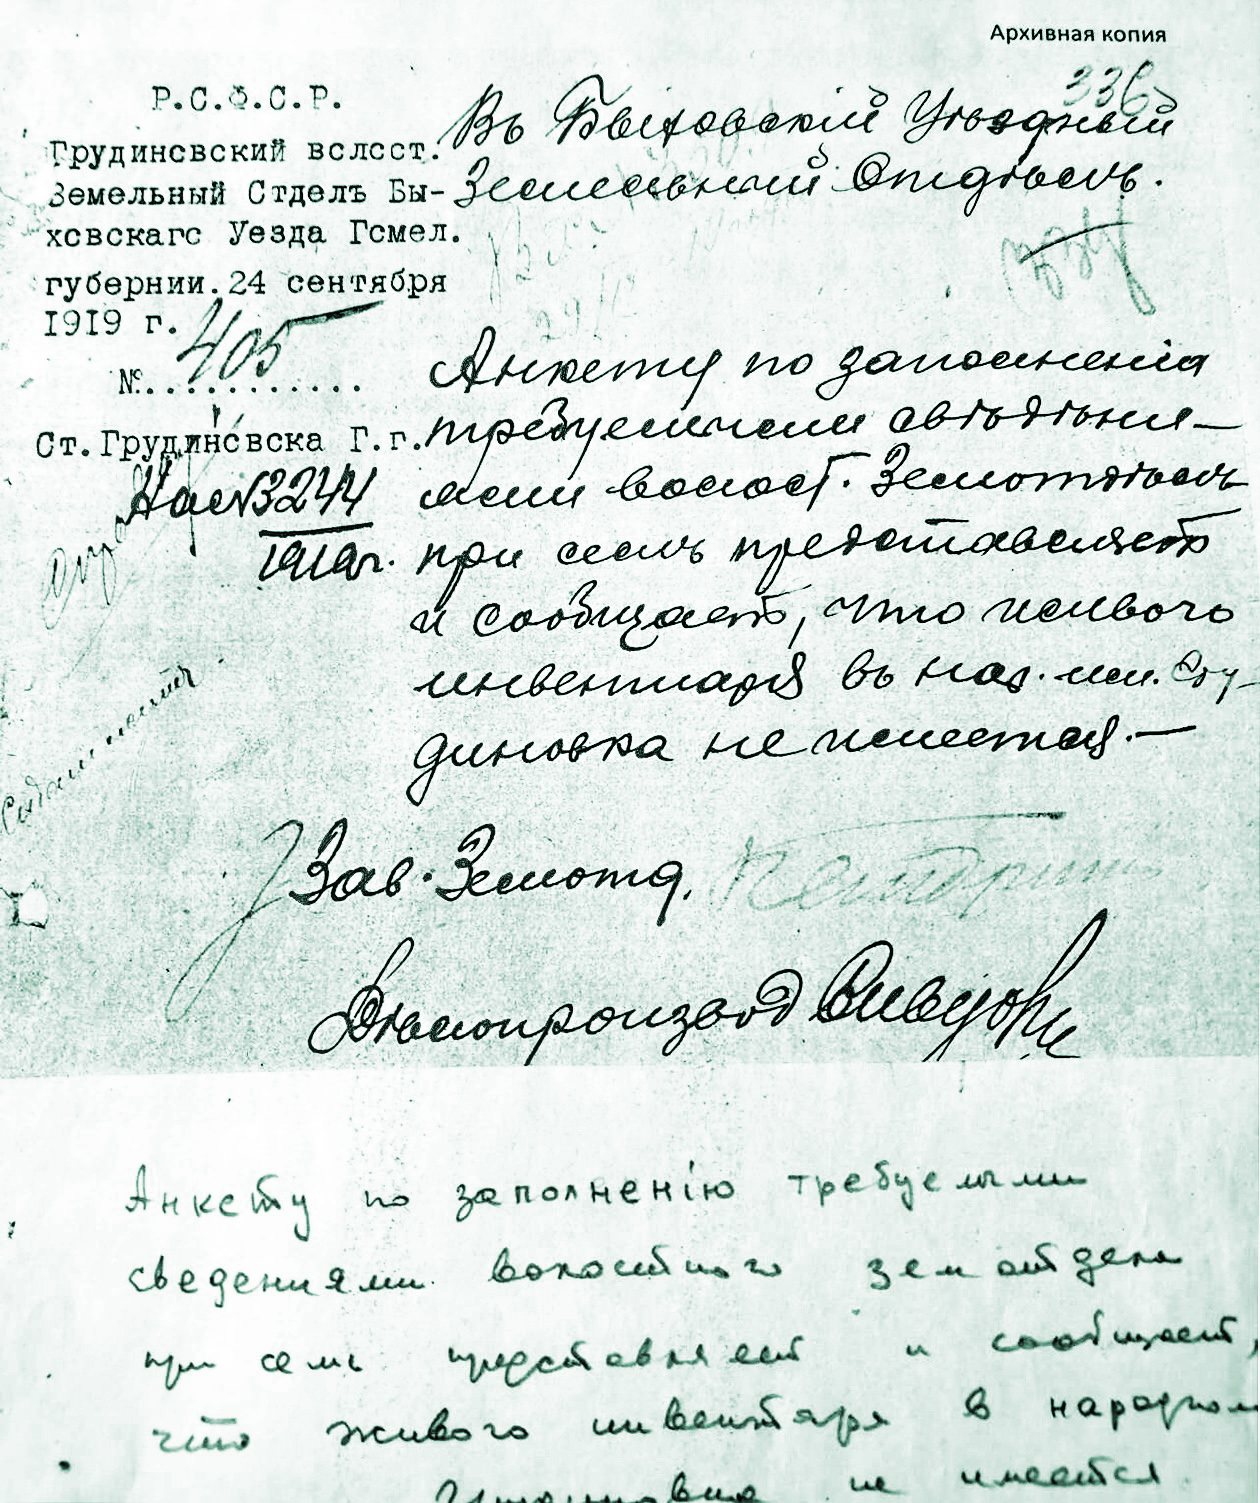 Архивная копия
336
Р.С.Ф.С.Р.
Грудиновский волост.
Земельный Отделъ Бы-
ховскаго Уезда Гомел.
губернии. 24 сентября
1919 г.
№ 405
Ст. Грудиновска Г.г.
На № 3244
1919 г.
Въ Быховскій Уѣздный
Земельный Отдѣлъ.
Анкету по заполненія
требуемыми свѣдѣни-
ями волост. Земотдѣлъ
при семъ представляетъ
и сообщаетъ, что живого
инвентаря въ нар. им. Гру-
диновка не имеется. —
Зав. Земотд.
Дѣлопроизвод
Анкету по заполненію требуемыми
сведениями волостного земотдела
при семъ представляет и сообщает,
что живого инвентаря в народном
не имеется